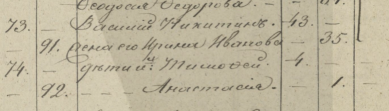 Ѳеодосія Ѳедорова. —
73. — Василій Никитинъ. 43. —
— 91. жена его Ирина Иванова — 35.
74. — дѣти ихъ Тимоѳей. 4. —
— 92. — Анастасія. — 1.